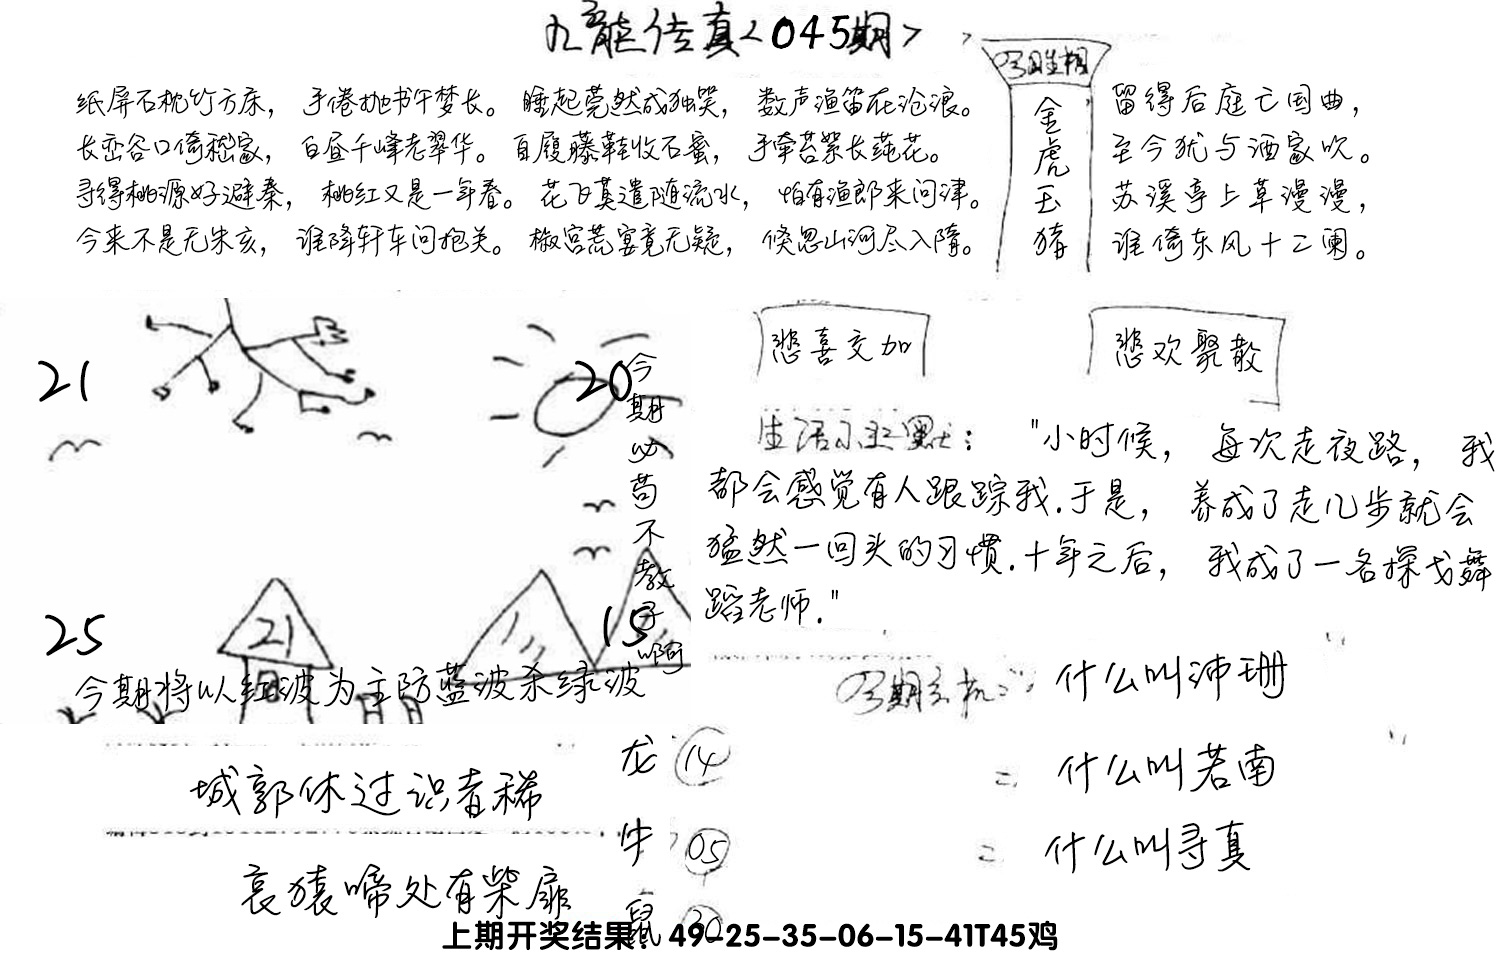 九龙传真<045期>
纸屏石枕竹方床，手倦抛书午梦长。睡起莞然成独笑，数声渔笛在沧浪。
长峦谷口倚嵇家，白昼千峰老翠华。自履藤鞋收石蜜，手牵苔絮长莼花。
寻得桃源好避秦，桃红又见一年春。花飞莫遣随流水，怕有渔郎来问津。
今来不是无朱亥，谁降轩车问抱关。椒宫荒宴竟无疑，倏忽山河尽入隋。
金虎玉猪
留得后庭亡国曲，
至今犹与酒家吹。
苏溪亭上草漫漫，
谁倚东风十二阑。
21
20
25
21
15
今期必苟不教子啊
今期将以红波为主防蓝波杀绿波
悲喜交加
悲欢聚散
生活小幽默："小时候，每次走夜路，我
都会感觉有人跟踪我.于是，养成了走几步就会
猛然一回头的习惯.十年之后，我成了一名探戈舞
蹈老师."
今期玄机：什么叫沛珊
= 什么叫若南
= 什么叫寻真
城郭休过识者稀
哀猿啼处有柴扉
龙 14
牛 05
鼠 30
上期开奖结果：49-25-35-06-15-41T45鸡